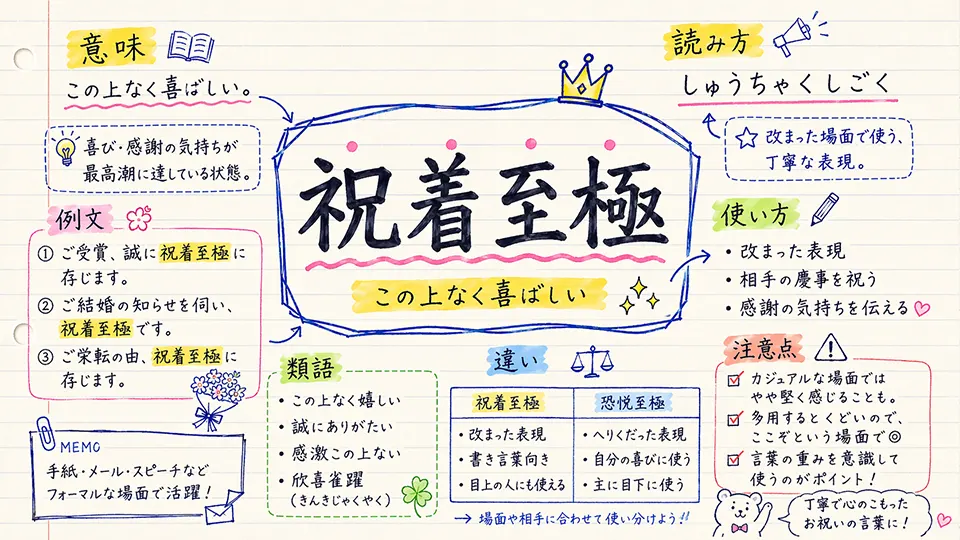 意味
この上なく喜ばしい。
喜び・感謝の気持ちが
最高潮に達している状態。
読み方
しゅうちゃくしごく
改まった場面で使う、
丁寧な表現。
祝着至極
この上なく喜ばしい
例文
① ご受賞、誠に祝着至極に
存じます。
② ご結婚の知らせを伺い、
祝着至極です。
③ ご栄転の由、祝着至極に
存じます。
使い方
・改まった表現
・相手の慶事を祝う
・感謝の気持ちを伝える
類語
・この上なく嬉しい
・誠にありがたい
・感激この上ない
・欣喜雀躍
(きんきじゃくやく)
違い
祝着至極 恐悦至極
・改まった表現 ・へりくだった表現
・書き言葉向き ・自分の喜びに使う
・目上の人にも使える ・主に目下に使う
→ 場面や相手に合わせて使い分けよう!!
注意点
カジュアルな場面では
やや堅く感じることも。
多用するとくどいので、
ここぞという場面で◎
言葉の重みを意識して
使うのがポイント!
MEMO
手紙・メール・スピーチなど
フォーマルな場面で活躍!
丁寧で心のこもった
お祝いの言葉に!